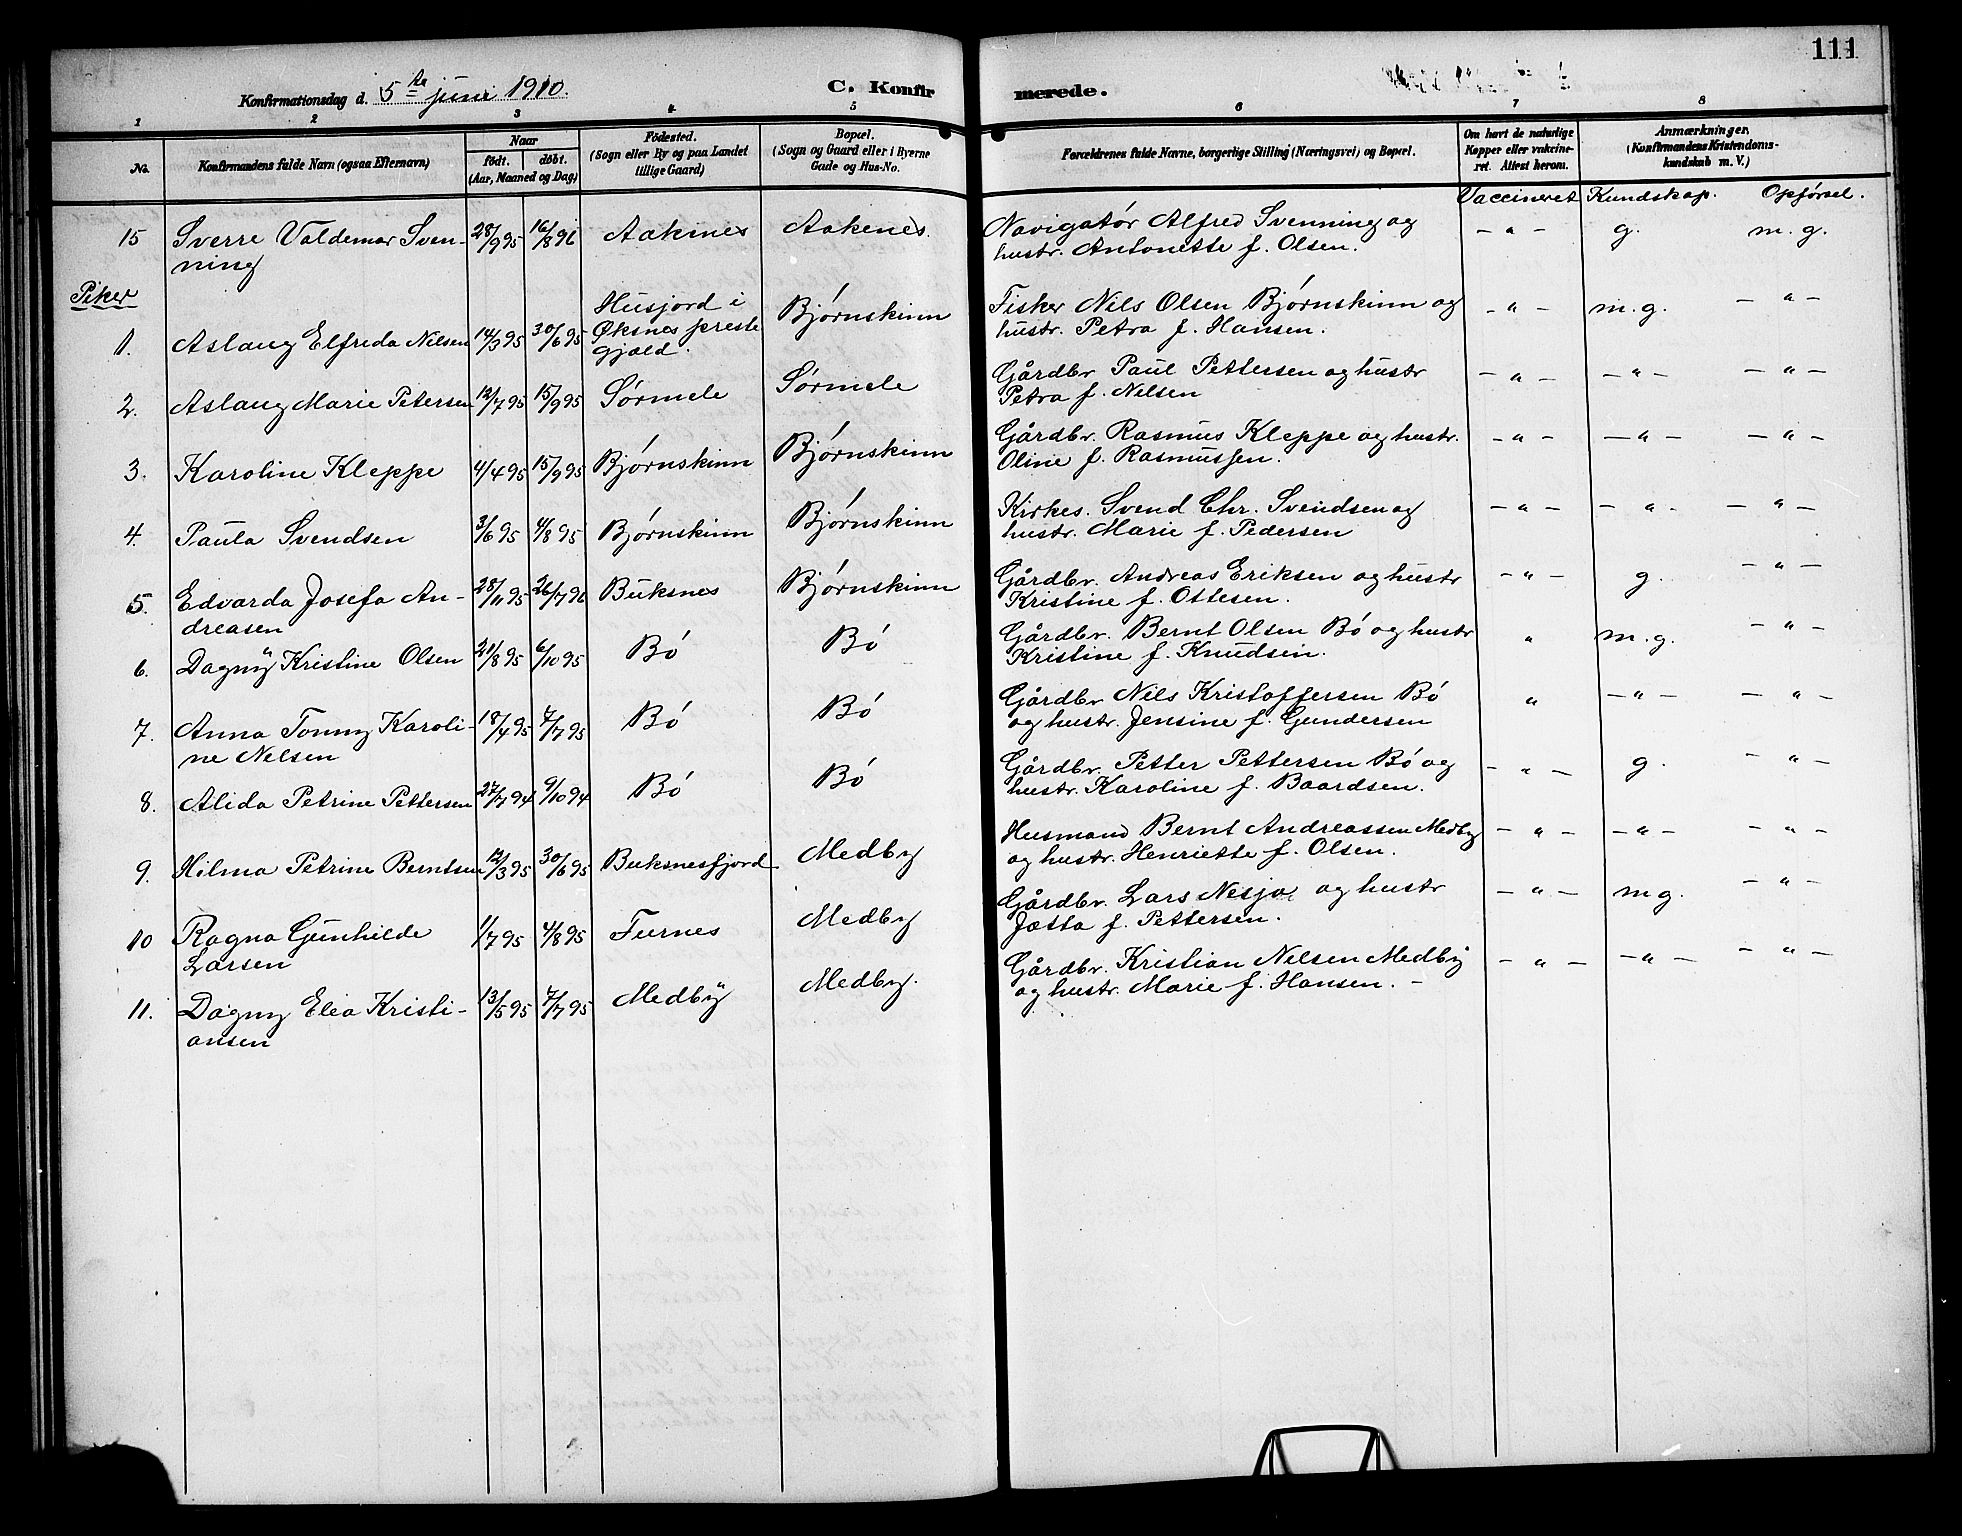 111
Konfirmationsdag d. 5te juni 1910.
C. Konfirmerede.
1 2 3 4 5 6 7 8
No.
Konfirmandens fulde Navn (ogsaa Efternavn)
Naar
født. døbt.
(Aar, Maaned og Dag)
Fødested.
(Sogn eller By og paa Landet
tillige Gaard)
Bopæl.
(Sogn og Gaard eller i Byerne
Gade og Hus-No.
Forældrenes fulde Navne, borgerlige Stilling (Næringsvei) og Bopæl.
Om havt de naturlige
Kopper eller vakcine-
ret. Attest herom.
Anmærkninger.
(Konfirmandens Kristendoms-
kundskab m. V.)
Vaccineret Kundskap. Opførsel.
15 Sverre Valdemar Sven- 28/9 95 16/8 96 Aakenes Aakenes. Navigatør Alfred Svenning og – " – g. m. g.
ning hustr. Antonette f. Olsen.
Piker
1. Aslaug Elfreda Nilsen 14/3 95 30/6 95 Husjord i
Øksnes preste
gjæld. Bjørnskinn Fisker Nils Olsen Bjørnskinn og – " – m. g. – " –
hustr. Petra f. Hansen.
2. Aslaug Marie Petersen 12/7 95 15/9 95 Sørmele Sørmele Gårdbr Paul Pettersen og hustr – " – – " – – " –
Petra f. Nelsen
3. Karoline Kleppe 4/4 95 15/9 95 Bjørnskinn Bjørnskinn Gårdbr. Rasmus Kleppe og hustr. – " – – " – – " –
Oline f. Rasmussen.
4. Paula Svendsen 3/6 95 4/8 95 Bjørnskinn Bjørnskinn Kirkes. Svend Chr. Svendsen og – " – – " – – " –
hustr. Marie f. Pedersen
5. Edvarda Josefa An- 28/11 95 26/7 96 Buksnes Bjørnskinn Gårdbr. Andreas Eriksen og hustr – " – g. – " –
dreasen Kristine f. Ottesen.
6. Dagny Kristine Olsen 21/8 95 6/10 95 Bø Bø Gårdbr. Bernt Olsen Bø og hustr " m. g. – " –
Kristine f. Knudsen.
7. Anna Tonny Karoli- 18/4 95 7/7 95 Bø Bø Gårdbr Nils Kristoffersen Bø " – " – – " –
ne Nelsen og hustr. Jensine f. Gundersen
8. Alida Petrine Pettersen 27/7 94 9/10 94 Bø Bø Gårdbr. Petter Pettersen Bø og – " – g. – " –
hustr. Karoline f. Baardsen.
9. Hilma Petrine Berntsen 12/3 95 30/6 95 Buksnesfjord Medby Husmand Bernt Andreassen Medby – " – – " – – " –
og hustr. Henriette f. Olsen.
10 Ragna Gunhilde 1/7 95 4/8 95 Furnes Medby Gårdbr. Lars Nesja og hustr – " – m g. – " –
Larsen Jætta f. Pettersen.
11. Dagny Elea Kristi- 13/5 95 7/7 95 Medby Medby. Gårdbr. Kristian Nelsen Medby – " – – " – – " –
ansen og hustr. Marie f. Hansen. –